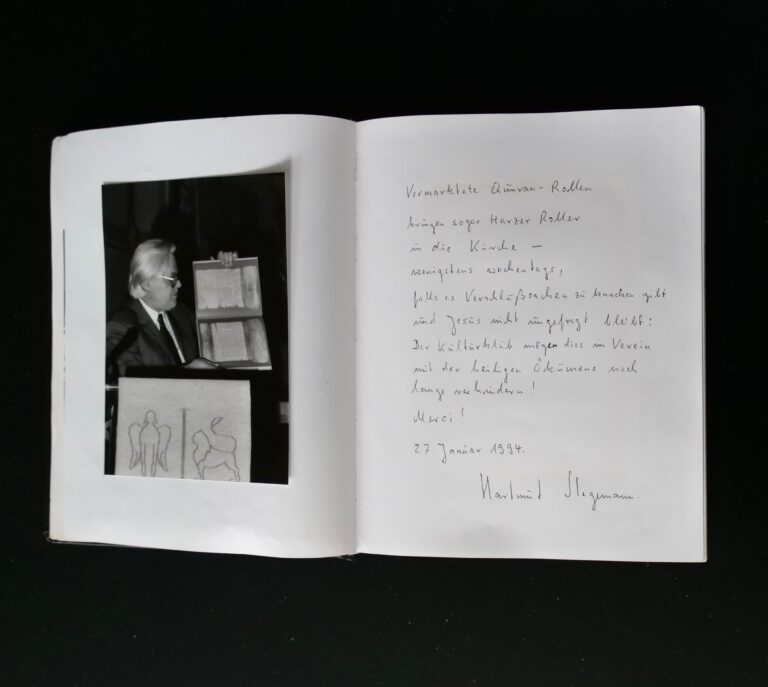 Vermarktete Qumran-Rollen
bringen sogar Harzer Roller
in die Kirche –
wenigstens wochentags,
falls es Verschlußsachen zu knacken gibt
und Jesus nicht ungefragt bleibt:
Der Kulturklub mögen dies im Verein
mit der heiligen Ökumene noch
lange verhindern!
Merci!
27. Januar 1994.
Hartmut Stegemann